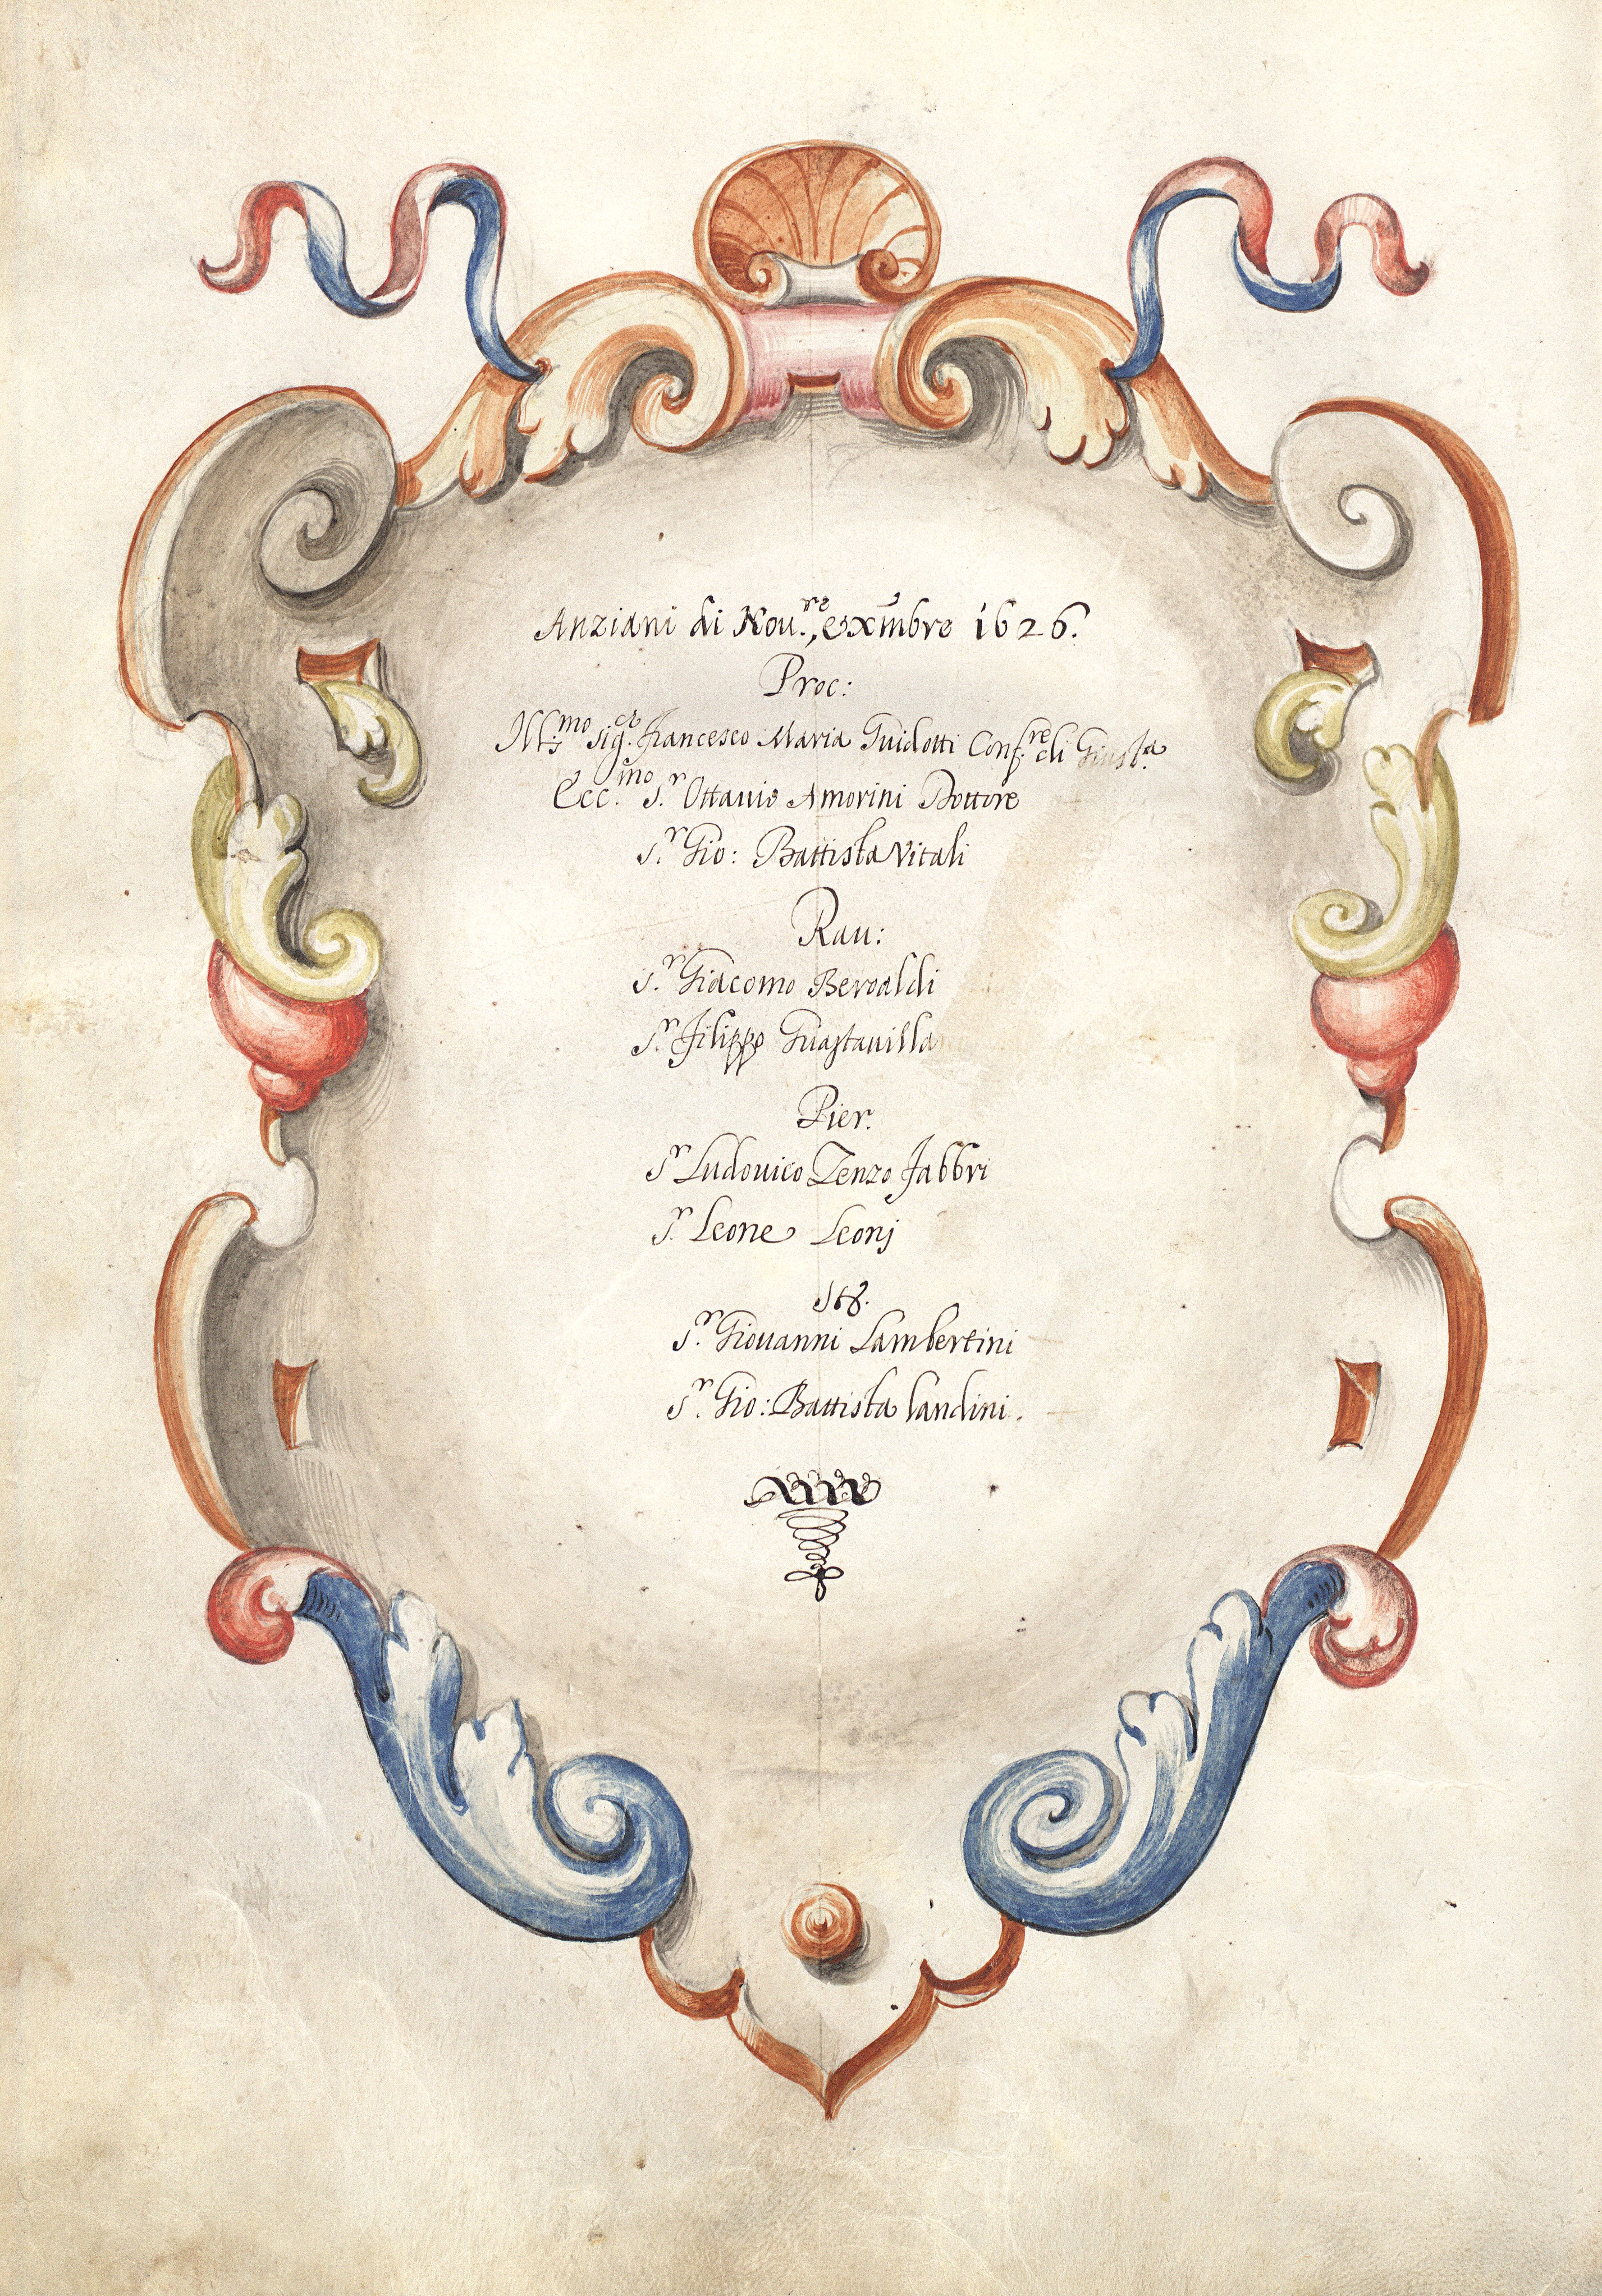 Anziani di Nou.re, e Xmbre 1626.
Proc:
Ill.mo sig.r Francesco Maria Guidotti Conf.re di Giust.a
Ecc.mo S.r Ottauio Amorini Dottore
S.r Gio: Battista Vitali
Rau:
S.r Giacomo Beroaldi
S.r Filippo Guastauilla
Pier.
S.r Ludouico Lenzo Fabbri
S.r Leone Leonj
St8.
S.r Giouanni Lambertini
S.r Gio: Battista Landini.